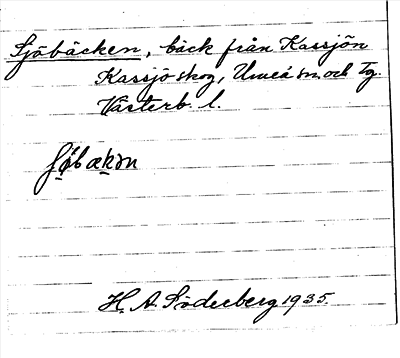 Sjöbäcken, bäck från Kassjön
Kassjö skog, Umeå sn. och Tg.
Västerb. l.
H. A. Söderberg 1935.